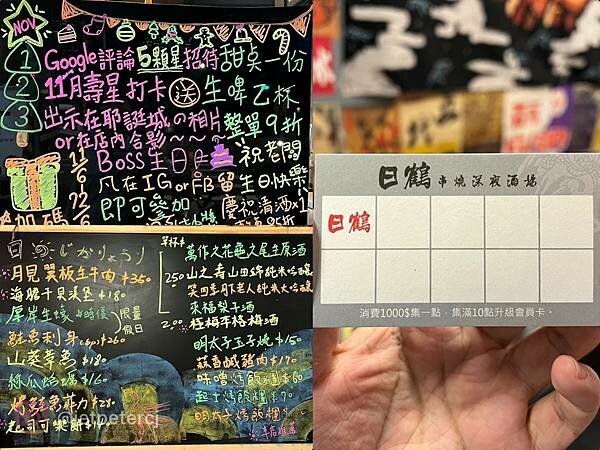 NOV
1 Google評論5顆星招待甜點一份
2 11月壽星打卡送生啤乙杯
3 出示在耶誕城の相片整單9折
or在店內合影~~~
11/6 Boss生日 祝老闆
凡在IG or FB留生日快樂
即可參加
慶祝清酒x1
單杯
月見翼板生牛肉 $350
海膽干貝漢堡 $180
厚岸生蠔 限量
假日
鮭魚刺身 (6pc) $260
山葵章魚 $180
絲瓜蛤蠣 $160
烤鮭魚菲力 $280
起司可樂餅
萬作之花龜之尾生原酒
250 山之壽山田錦純米吟釀
笑四季月下老人純米大吟釀
來福梨子酒
200 桂梅李格梅酒
明太子玉子燒 $150
蒜香鹹豬肉 $170
味噌烤飯糰 $60
起士烤飯糰 $70
明太子烤飯糰
@jetpetercj
日鶴 串燒深夜酒場
日鶴
消費1000$集一點，集滿10點升級會員卡。